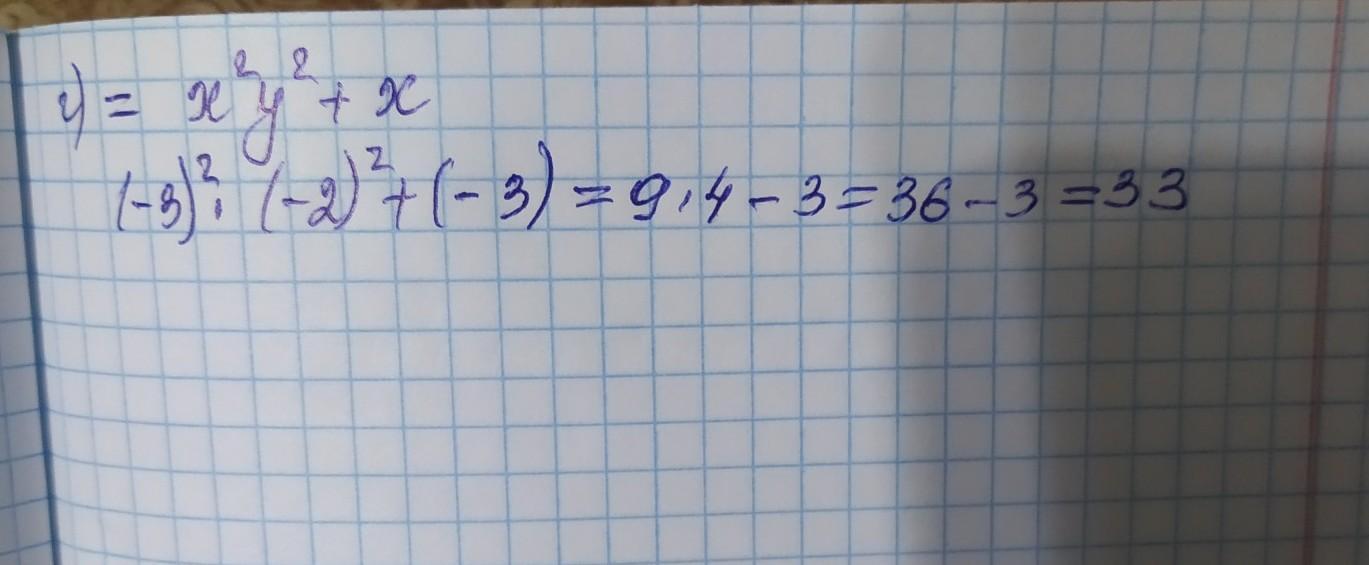 г) = x²y² + x
(-3)² · (-2)² + (-3) = 9 · 4 - 3 = 36 - 3 = 33